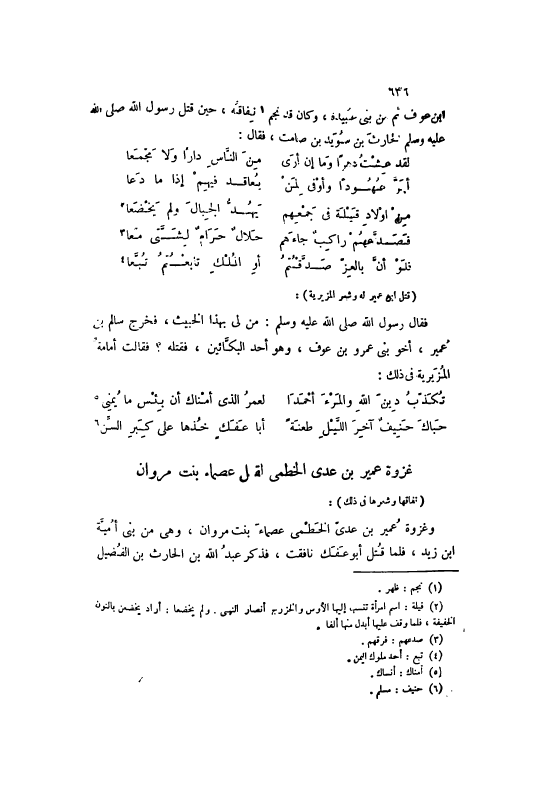 ٦٣٦
ابن عوف ثم من بنى عبيدة ، وكان قد نجم ١ نفاقه ، حين قتل رسول الله صلى الله
عليه وسلم الحارث بن سُوَيد بن صامت ، فقال :
لقد عِشْتُ دهرًا وما إن أرَى من النَّاسِ دارًا ولا مَجْمَعَا
أبَرَّ عُهُودًا وأوْفى لِمَنْ يُعاقِد فيهم إذا ما دَعا
مِن اولاد قَيْلَة فى جَمْعِهِم يَهُدُّ الجِبالَ ولم يَخْضَعا٢
فَصَدَّعَهُم راكِبٌ جاءَهم حَلالٌ حَرَامٌ لِشَتَّى مَعا٣
فلَوْ أنَّ بالعِزّ صَدَّقْتُمُ أوِ المُلْكِ تابَعْتُمُ تُبَّعا٤
( قتل ابن عمير له وشعر المزيرية ) :
فقال رسول الله صلى الله عليه وسلم : من لى بهذا الخبيث ، فخرج سالم بن
عُمير ، أخو بنى عمرو بن عوف ، وهو أحد البكَّائين ، فقتله ؟ فقالت أمامةُ
المُزَيرية فى ذلك :
تُكَذّبُ دِينَ اللهِ والمَرْءَ أحْمَدَا لعمرُ الذى أمْناكَ أن بِئْسَ ما يُمْنِى ٥
حَباكَ حَنِيفٌ آخِرَ اللَّيْلِ طَعْنَةً أبا عَفَكٍ خُذْها على كِبَرِ السِّنّ٦
غزوة عمير بن عدى الخطمى لقتل عصماء بنت مروان
( نفاقها وشعرها فى ذلك ) :
وغزوة عُمير بن عدىّ الخَطْمى عصماءَ بنت مروان ، وهى من بنى أُميَّة
ابن زيد ، فلما قُتل أبو عَفَك نافقت ، فذكر عبدُ الله بن الحارث بن الفُضيل
(١) نجم : ظهر .
(٢) قيلة : اسم امرأة تنسب إليها الأوس والخزرج أنصار النبى . ولم يخضعا : أراد يخضعن بالنون
الخفيفة ، فلما وقف عليها أبدل منها ألفا .
(٣) صدعهم : فرقهم .
(٤) تبع : أحد ملوك اليمن .
(٥) أمناك : أنساك .
(٦) حنيف : مسلم .